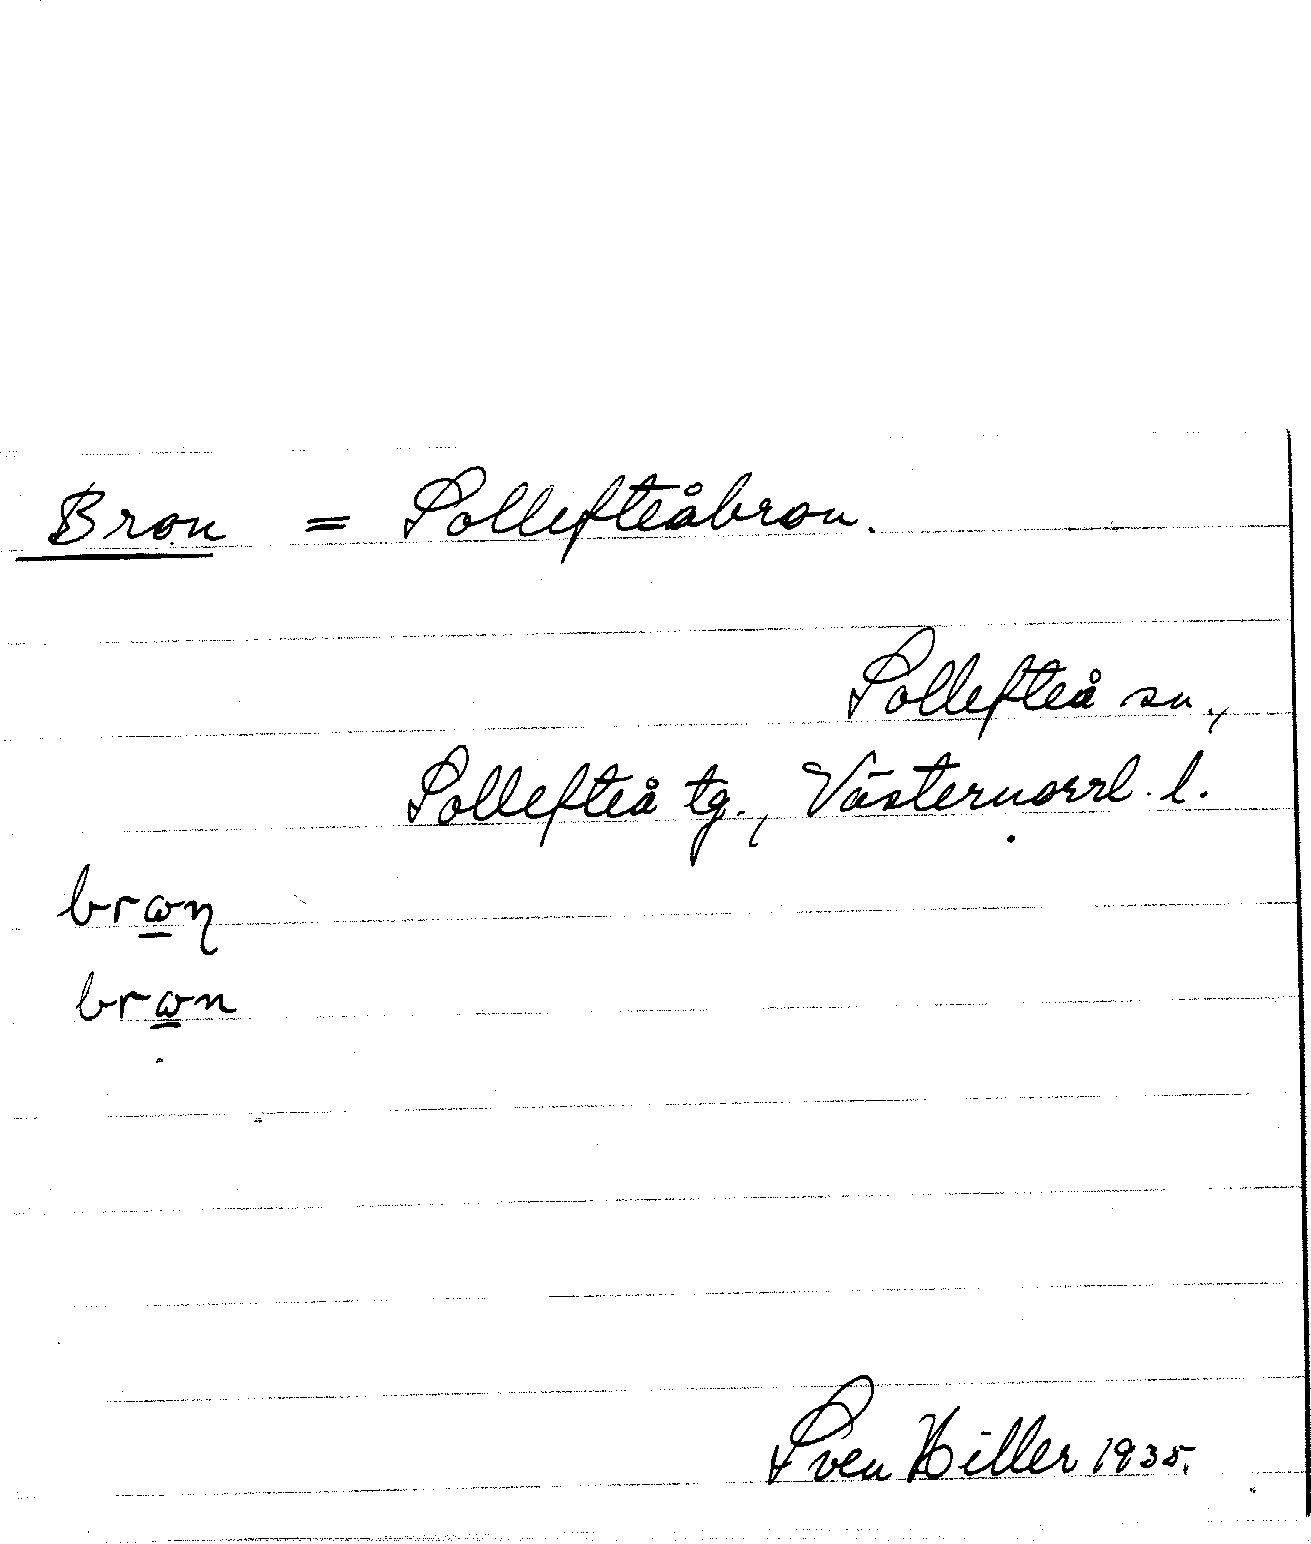 Bron = Sollefteåbron.
Sollefteå sn.,
Sollefteå tg., Västernorrl. l.
brɷn̥
brɷn
Sven Hiller 1935.